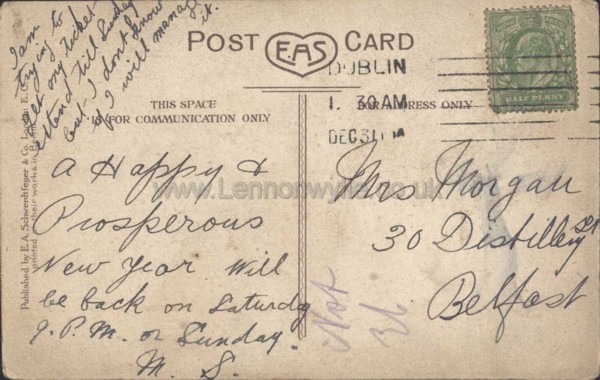 I am
trying to
get my ticket
extend till Sunday
but I don't know
if I will manage
it.
POST CARD
E.A.S
THIS SPACE
IS FOR COMMUNICATION ONLY
FOR ADDRESS ONLY
DUBLIN
1. 30AM
DEC 31
HALF PENNY
Published by E. A. Schwerdtfeger & Co. London E. C.
printed at their works in Berlin
www.Lennonwylie.co.uk
A Happy &
Prosperous
New Year. Will
be back on Saturday
9. P.M. or Sunday.
M. S.
Mrs Morgan
30 Distillery St
Belfast
Not
36